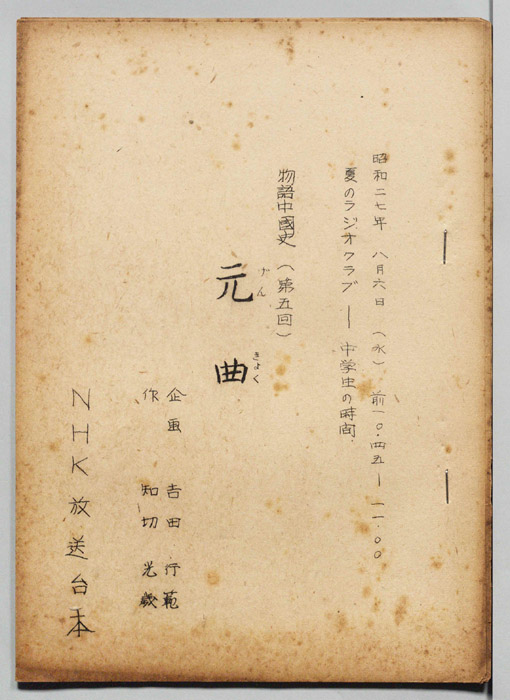 昭和二七年 八月六日 (水) 前一〇.四五ー一一.〇〇
夏のラジオクラブ ー 中学生の時間
物語中國史 (第五回)
元曲
げんきょく
企画 吉田行範
作 知切光歳
NHK放送台本